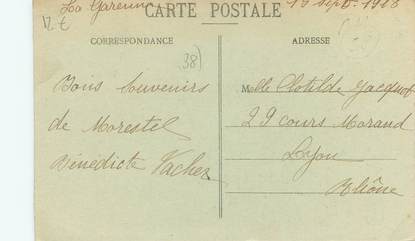 La Garenne
19 Sept. 1918
12 €
CARTE POSTALE
CORRESPONDANCE
ADRESSE
38)
Bons Souvenirs
de Morestel
Bénédicte Vacher
Melle Clotilde Jacquot
29 cours Morand
Lyon
Rhône